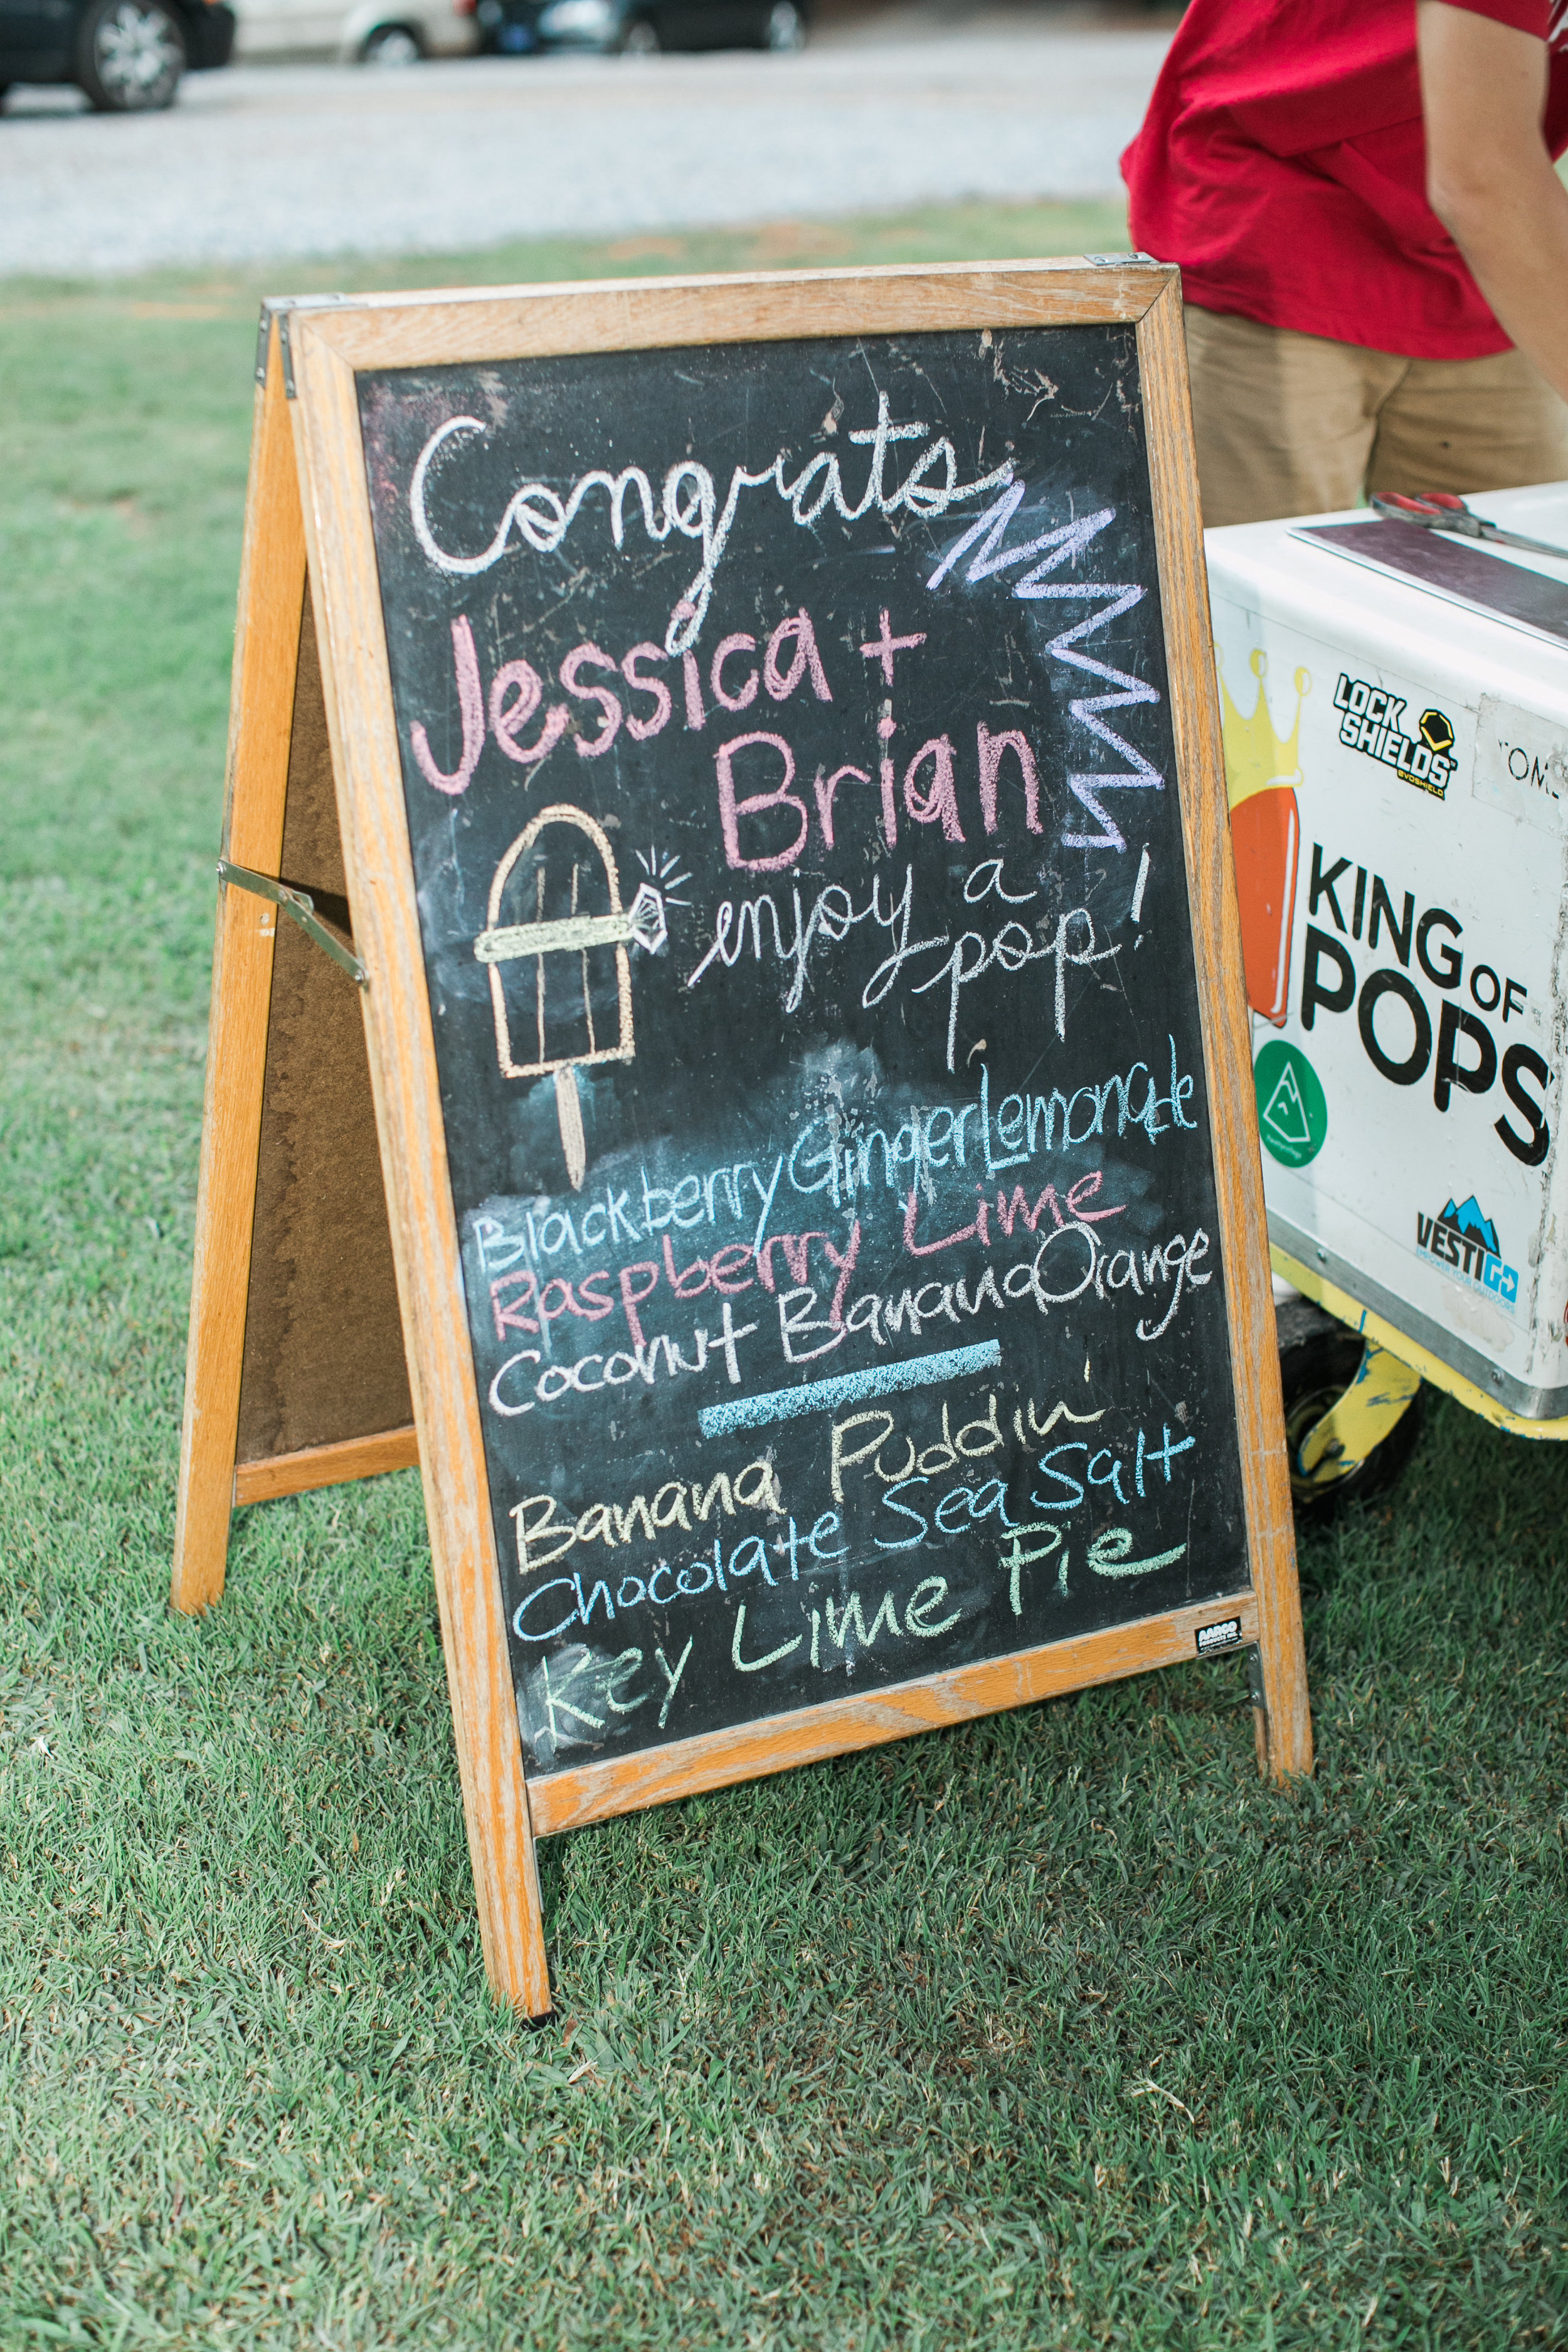 Congrats
Jessica +
Brian
enjoy a
pop!
Blackberry Ginger Lemonade
Raspberry Lime
Coconut Banana Orange
Banana Puddin'
Chocolate Sea Salt
Key Lime Pie
LOCK
SHIELDS
EVOSHIELD
KING OF
POPS
VESTIGO